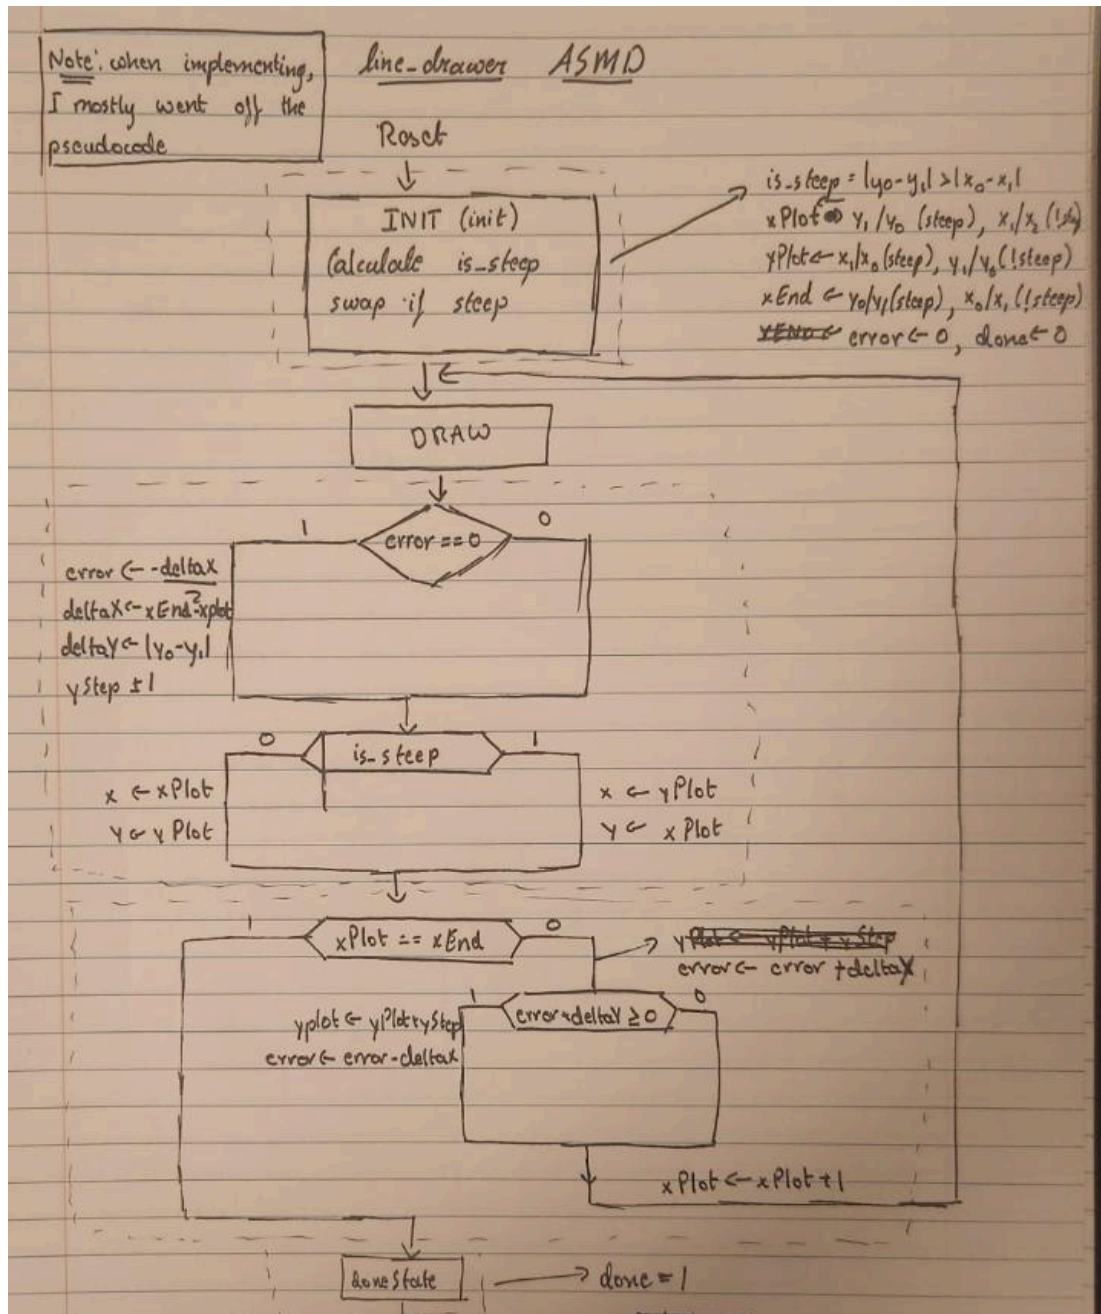 Note: when implementing,
I mostly went off the
pseudocode
line_drawer ASMD
Reset
INIT (init)
Calculate is_steep
swap if steep
is_steep = |y₀-y₁| > |x₀-x₁|
xPlot ← y₁/y₀ (steep), x₁/x₂ (!steep)
yPlot ← x₁/x₀ (steep), y₁/y₀ (!steep)
xEnd ← y₀/y₁ (steep), x₀/x₁ (!steep)
yEND ← error ← 0, done ← 0
DRAW
1
error == 0
0
error ← -deltaX
2
deltaX ← xEnd - xplot
deltaY ← |y₀-y₁|
yStep ±1
0
is_steep
1
x ← xPlot
y ← yPlot
x ← yPlot
y ← xPlot
1
xPlot == xEnd
0
yPlot ← yPlot + yStep
error ← error + deltaX
1
error+deltaY ≥ 0
0
yplot ← yPlot+yStep
error ← error-deltaX
xPlot ← xPlot + 1
doneState
done = 1